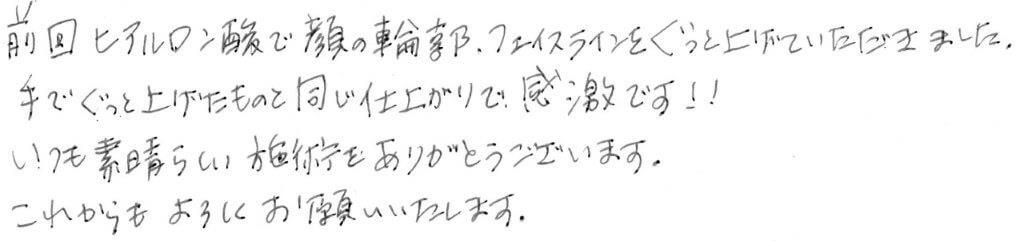 前回ヒアルロン酸で顔の輪郭、フェイスラインをぐっと上げていただきました。
手でぐっと上げたものと同じ仕上がりで感激です!!
いつも素晴らしい施術をありがとうございます。
これからもよろしくお願いいたします。